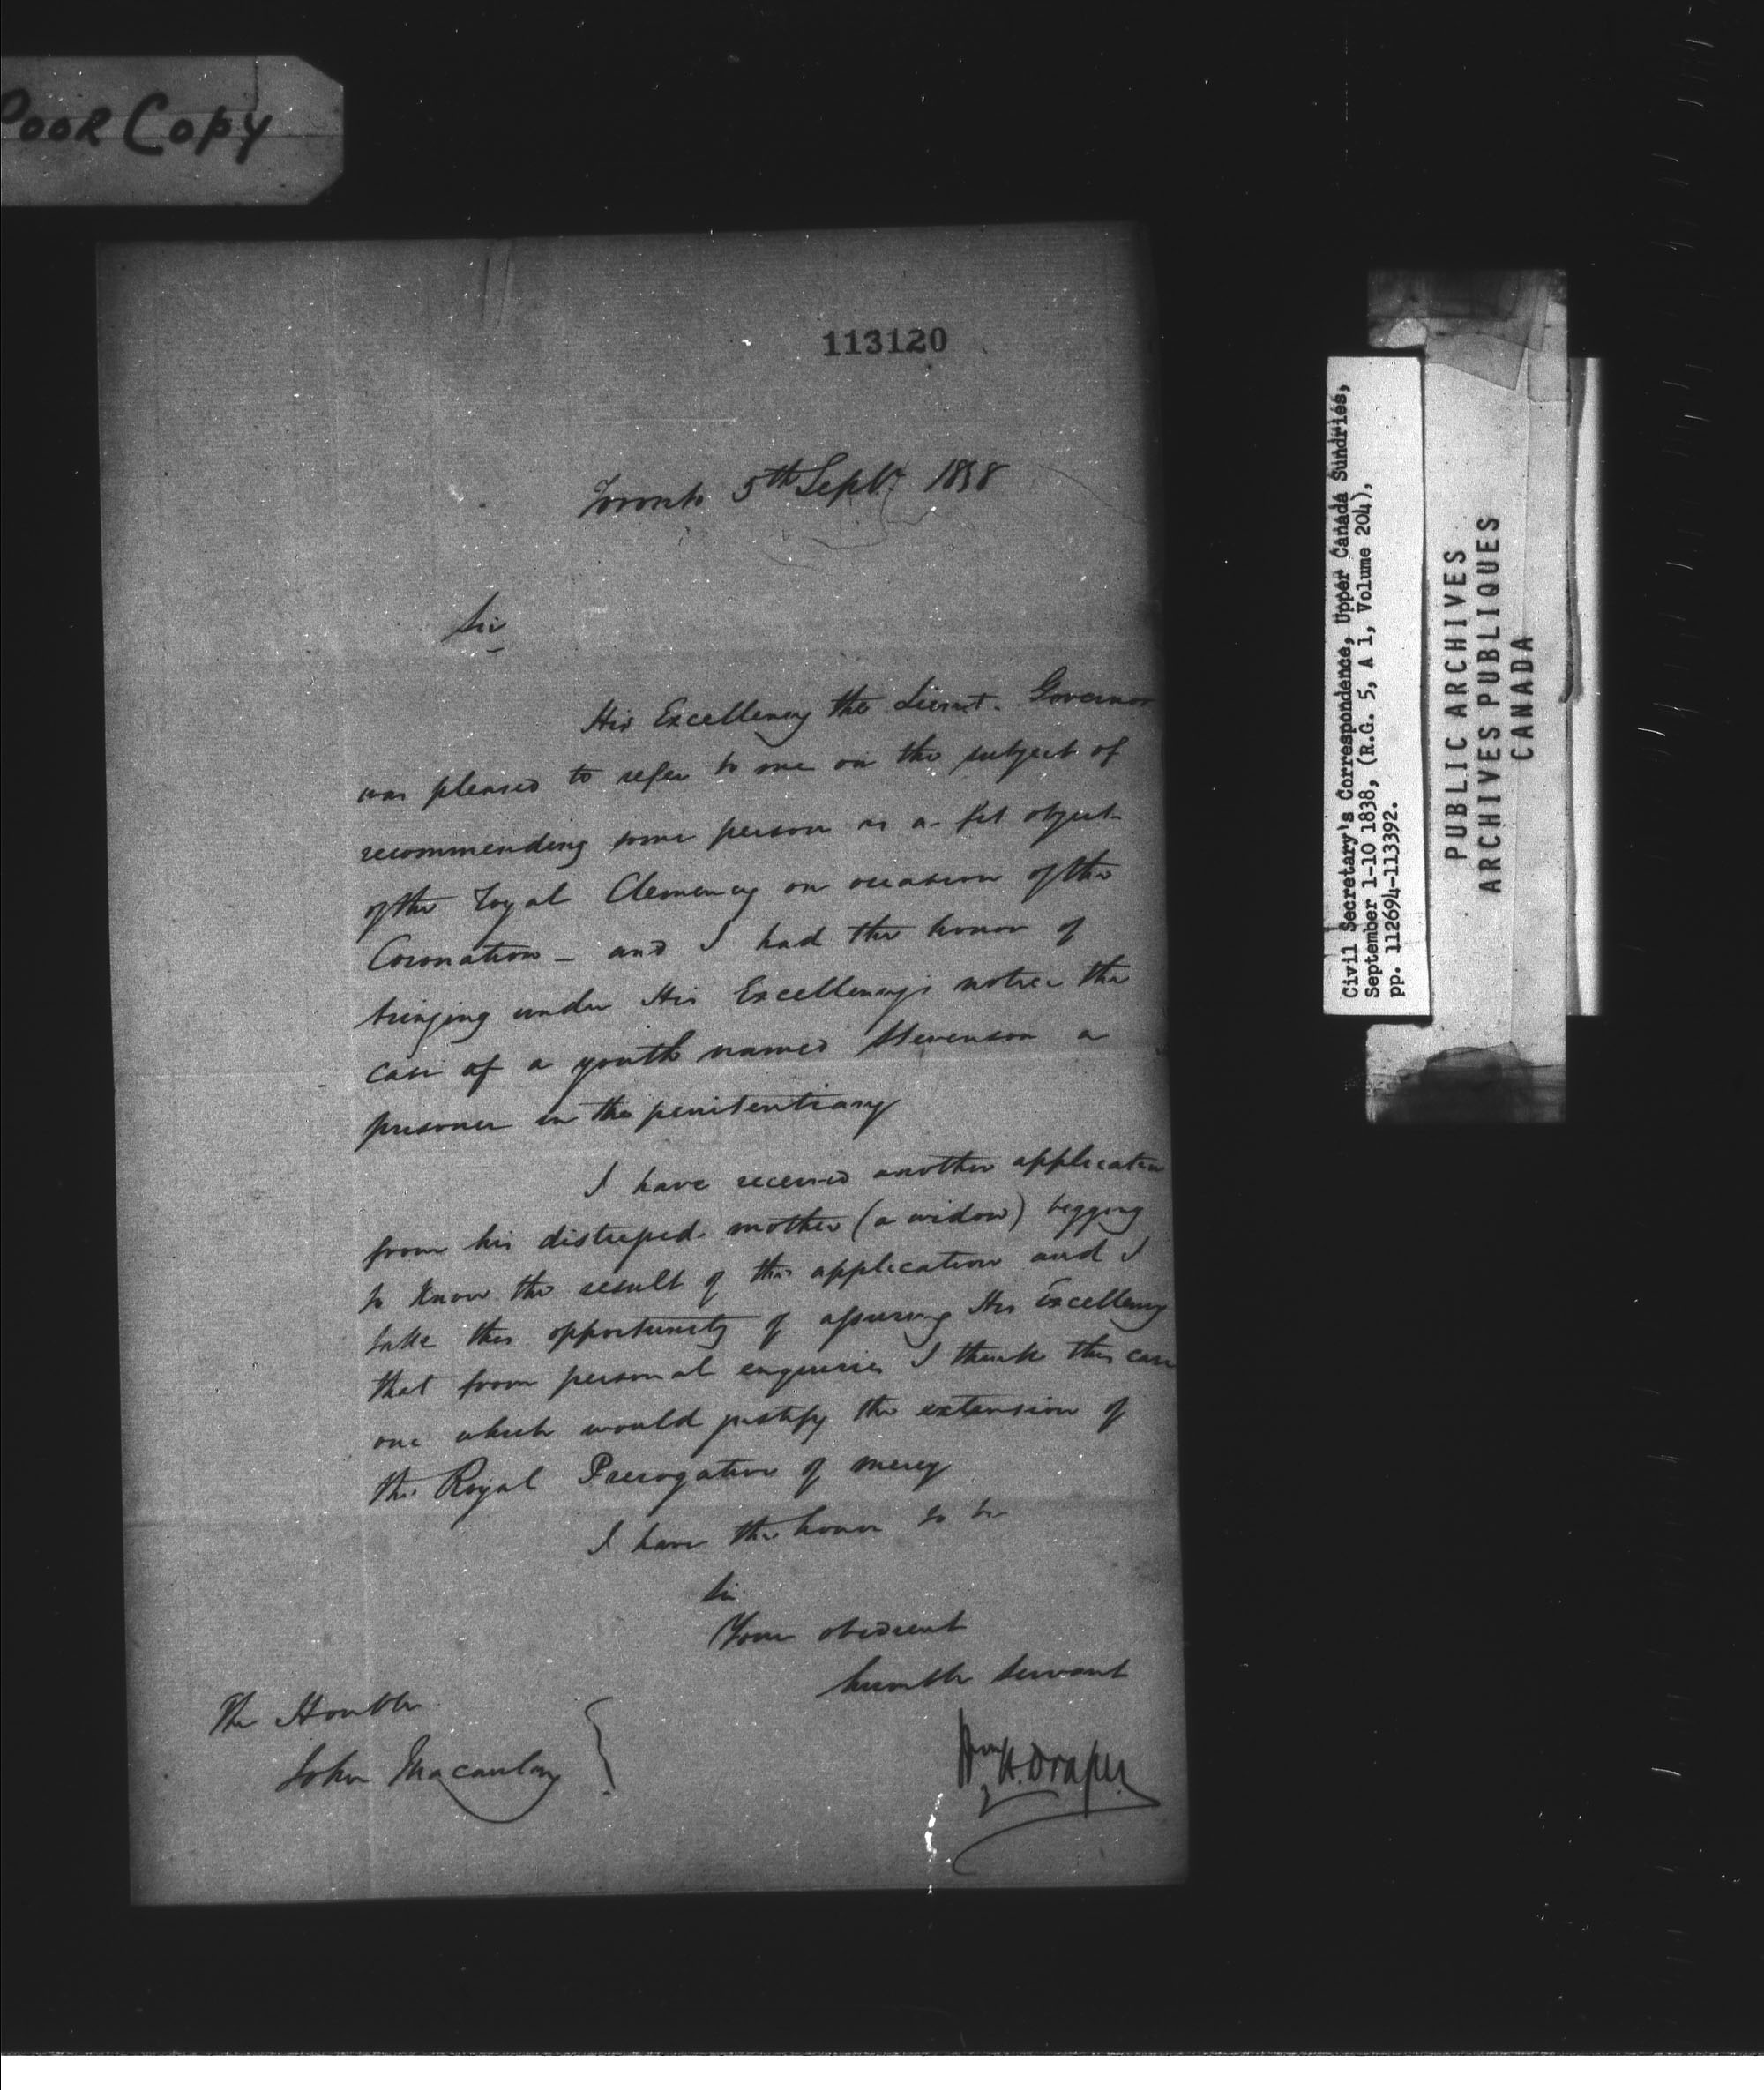 Poor Copy
113120
Toronto 5th Septr. 1838
Sir
His Excellency the Lieut. Governor
was pleased to refer to me on the subject of
recommending some person as a fit object
of the Royal Clemency on occasion of the
Coronation – and I had the honor of
bringing under His Excellency's notice the
case of a youth named Stevenson a
prisoner in the penitentiary
I have received another application
from his distressed mother (a widow) begging
to know the result of this application and I
take this opportunity of assuring His Excellency
that from personal enquiries I think this case
one which would justify the extension of
the Royal Prerogative of mercy
I have the honor to be
Sir
Your obedient
humble servant
Wm H. Draper
The Honble
John Macaulay
Civil Secretary's Correspondence, Upper Canada Sundries,
September 1-10 1838, (R.G. 5, A 1, Volume 204),
pp. 112694-113392.
PUBLIC ARCHIVES
ARCHIVES PUBLIQUES
CANADA